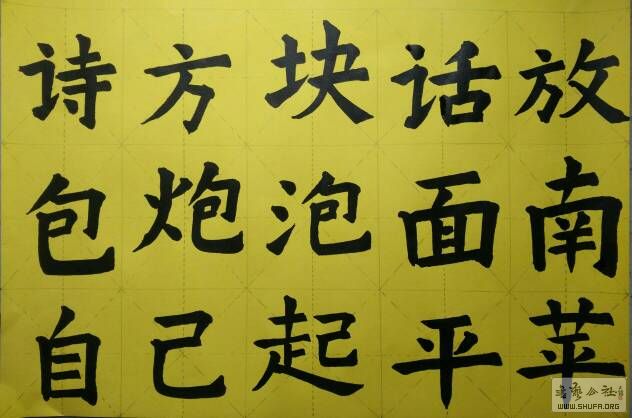 诗方块话放
包炮泡面南
自己起平苹
WWW.SHUFA.ORG